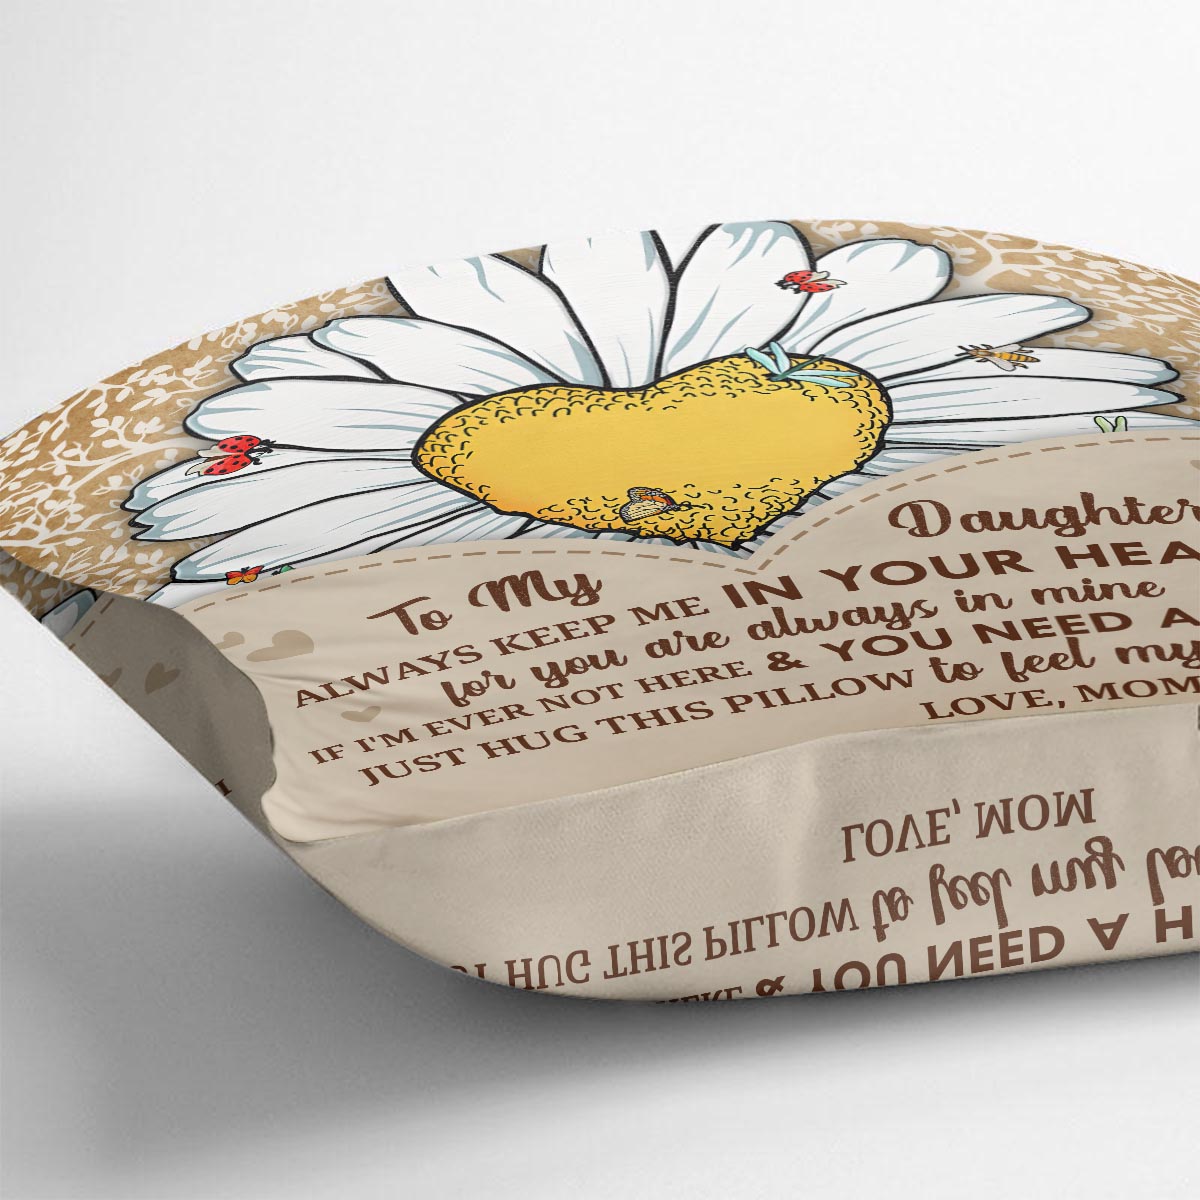 To My Daughter
ALWAYS KEEP ME IN YOUR HEA
for you are always in mine
IF I'M EVER NOT HERE & YOU NEED A
JUST HUG THIS PILLOW to feel my
LOVE, MOM
LOVE, MOM
HUG THIS PILLOW to feel my
& YOU NEED A H